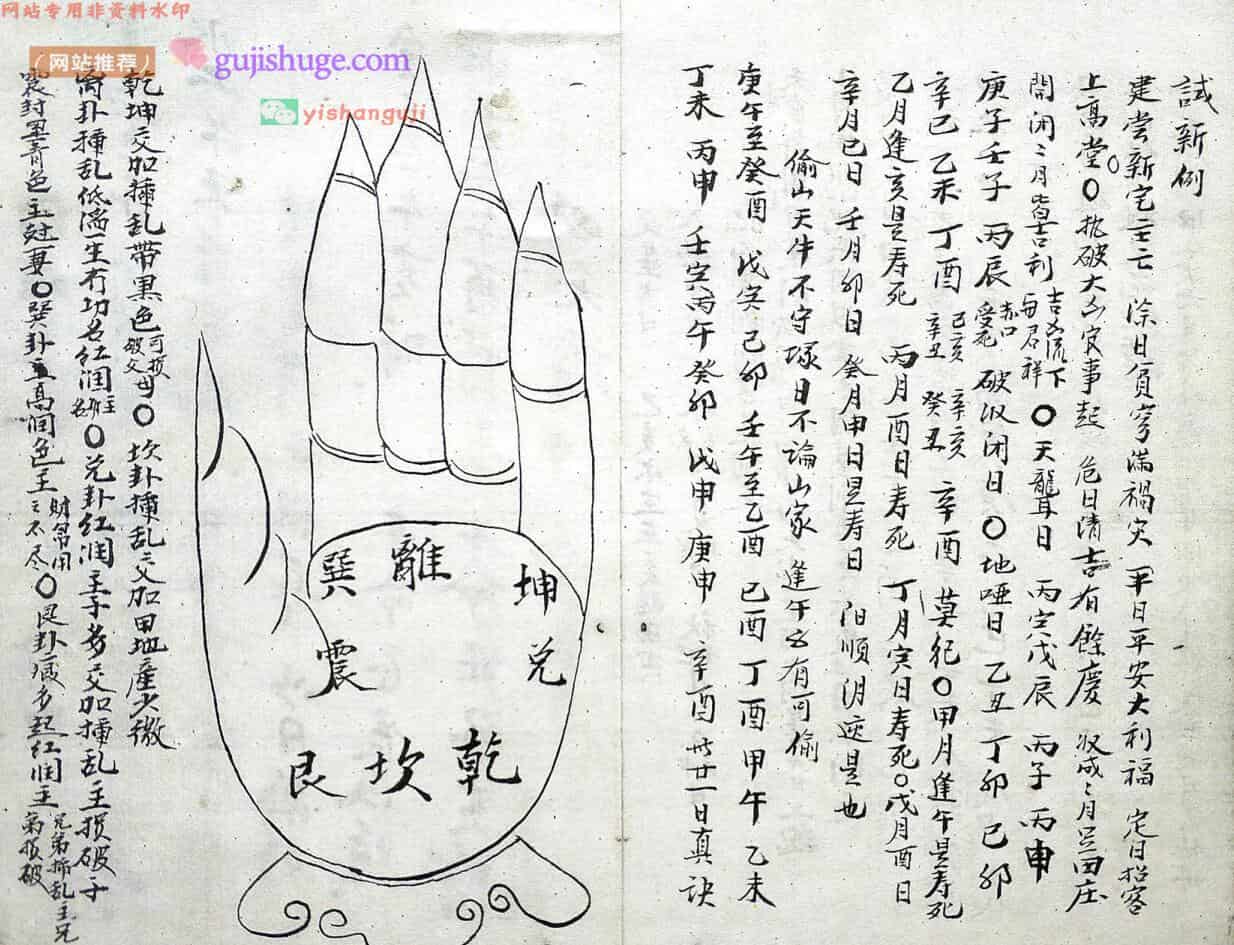 网站专用非资料水印
（网站推荐）
gujishuge.com
yishanguji
試新例
建尝新宅 除日 满祸灾 平日平安大利福 定日招客
上高堂○执破大凶官事起 危日清吉有餘慶 收成〻月足田庄
開闭〻月皆吉利 吉凶流下 ○天聾日 丙寅戊辰 丙子丙申
庚子壬子 丙辰 赤口受死 破收闭日○地哑日 乙丑 丁卯 己卯
辛巳 乙未 丁酉 己亥 辛丑 辛亥 癸丑 辛酉 莫犯○甲月逢午是寿死
乙月逢亥是寿死 丙月酉日寿死 丁月寅日寿死○戊月酉日
辛月巳日 壬月卯日 癸月申日是寿日 阳順阴 是也
偷山天牛不守塚日不論山家 逢午 有可偷
庚午至癸酉 戊寅 己卯 壬午至乙酉 己酉 丁酉 甲午 乙未
丁未 丙申 壬寅 丙午 癸卯 戊申 庚申 辛酉 廿一日真訣
巽 離 坤
震 兑
艮 坎 乾
乾坤交加插乱带黑色 可损破父母○坎卦插乱交加田地產少微
离卦插乱低 一生冇功名红润主 ○兑卦红润主子 交加插乱主损破子
震卦黑青色主 妻○巽卦 高润色主 财帛用之不尽○艮卦 多起红润主 兄弟插乱主兄弟损破